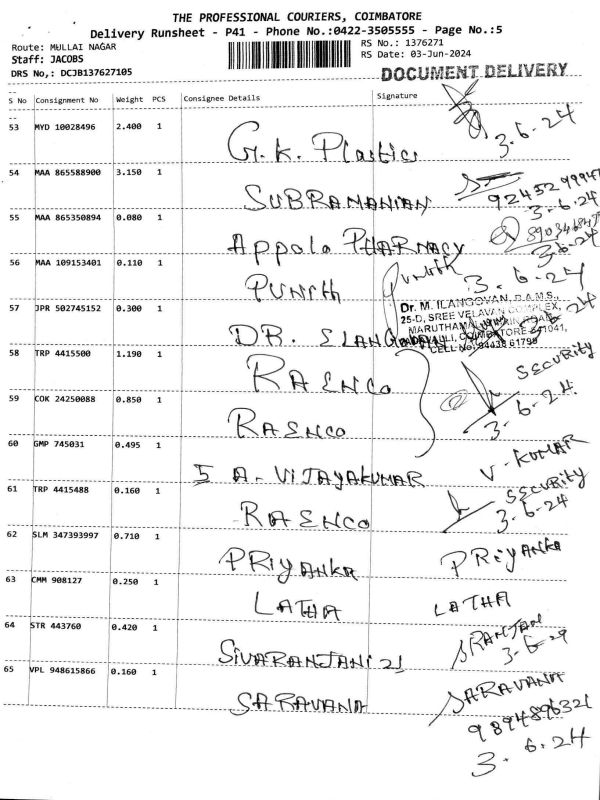 THE PROFESSIONAL COURIERS, COIMBATORE
Delivery Runsheet - P41 - Phone No.:0422-3505555 - Page No.:5
Route: MULLAI NAGAR
RS No.: 1376271
Staff: JACOBS
RS Date: 03-Jun-2024
DRS No,: DCJB137627105
DOCUMENT DELIVERY
S No Consignment No Weight PCS Consignee Details Signature
53 MYD 10028496 2.400 1
G.K. Plastics 3.6.24
54 MAA 865588900 3.150 1
SUBRAMANIAN 3.6.24
55 MAA 865350894 0.080 1
Appolo PHARMACY 3.6.24
56 MAA 109153401 0.110 1
PUNITH Punith 3.6.24
57 JPR 502745152 0.300 1
Dr. M. ILANGOVAN, B.A.M.S.,
25-D, SREE VELAVAN COMPLEX,
MARUTHAMALAI MAIN ROAD,
COIMBATORE 641041,
CELL No: 94438 61799
DR. ELANGOVAN
58 TRP 4415500 1.190 1
RAENCO SECURITY
59 COK 24250088 0.850 1
RAENCO 3.6.24
60 GMP 745031 0.495 1
5 A. VIJAYAKUMAR V. KUMAR
61 TRP 4415488 0.160 1
RAENCO SECURITY
3.6.24
62 SLM 347393997 0.710 1
PRiYANKA PRiYANKA
63 CMM 908127 0.250 1
LATHA LATHA
64 STR 443760 0.420 1
SIVARANJANI 21 SRANJANI
65 VPL 948615866 0.160 1
SARAVANA SARAVANA
9894896321
3.6.24